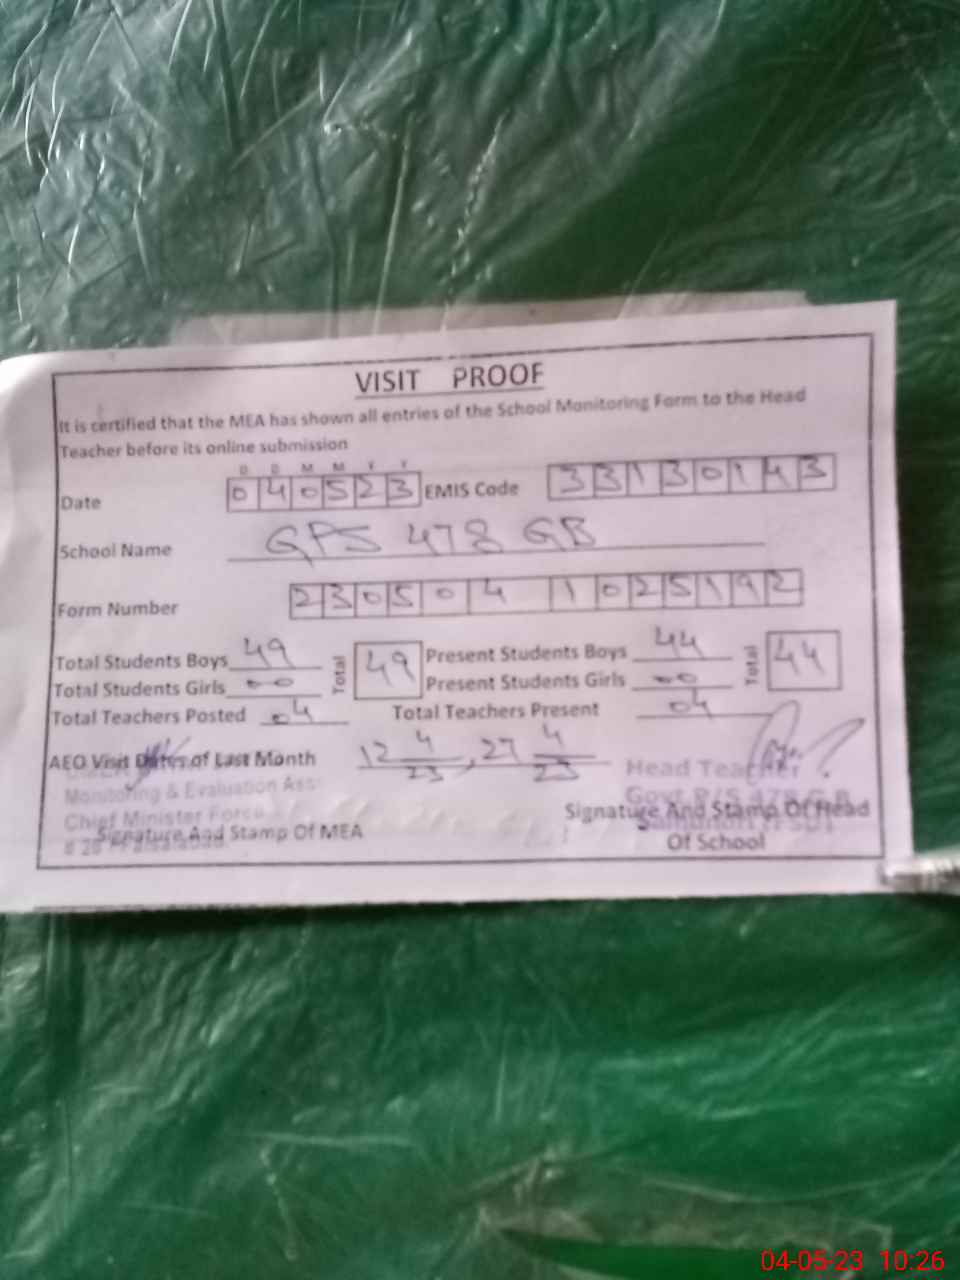 VISIT PROOF
It is certified that the MEA has shown all entries of the School Monitoring Form to the Head
Teacher before its online submission
D D M M Y Y
Date 040523 EMIS Code 33130143
School Name GPS 478 GB
Form Number 230504 1025192
Total Students Boys 49 Total 49 Present Students Boys 44 Total 44
Total Students Girls 00 Present Students Girls 00
Total Teachers Posted 04 Total Teachers Present 04
AEO Visit Dates of Last Month 12 4/23, 27 4/23
Head Teacher
Monitoring & Evaluation Ass
Govt P/S 478 G.B
Chief Minister Force
Signature And Stamp Of MEA
Signature And Stamp Of Head
Of School
04-05-23 10:26